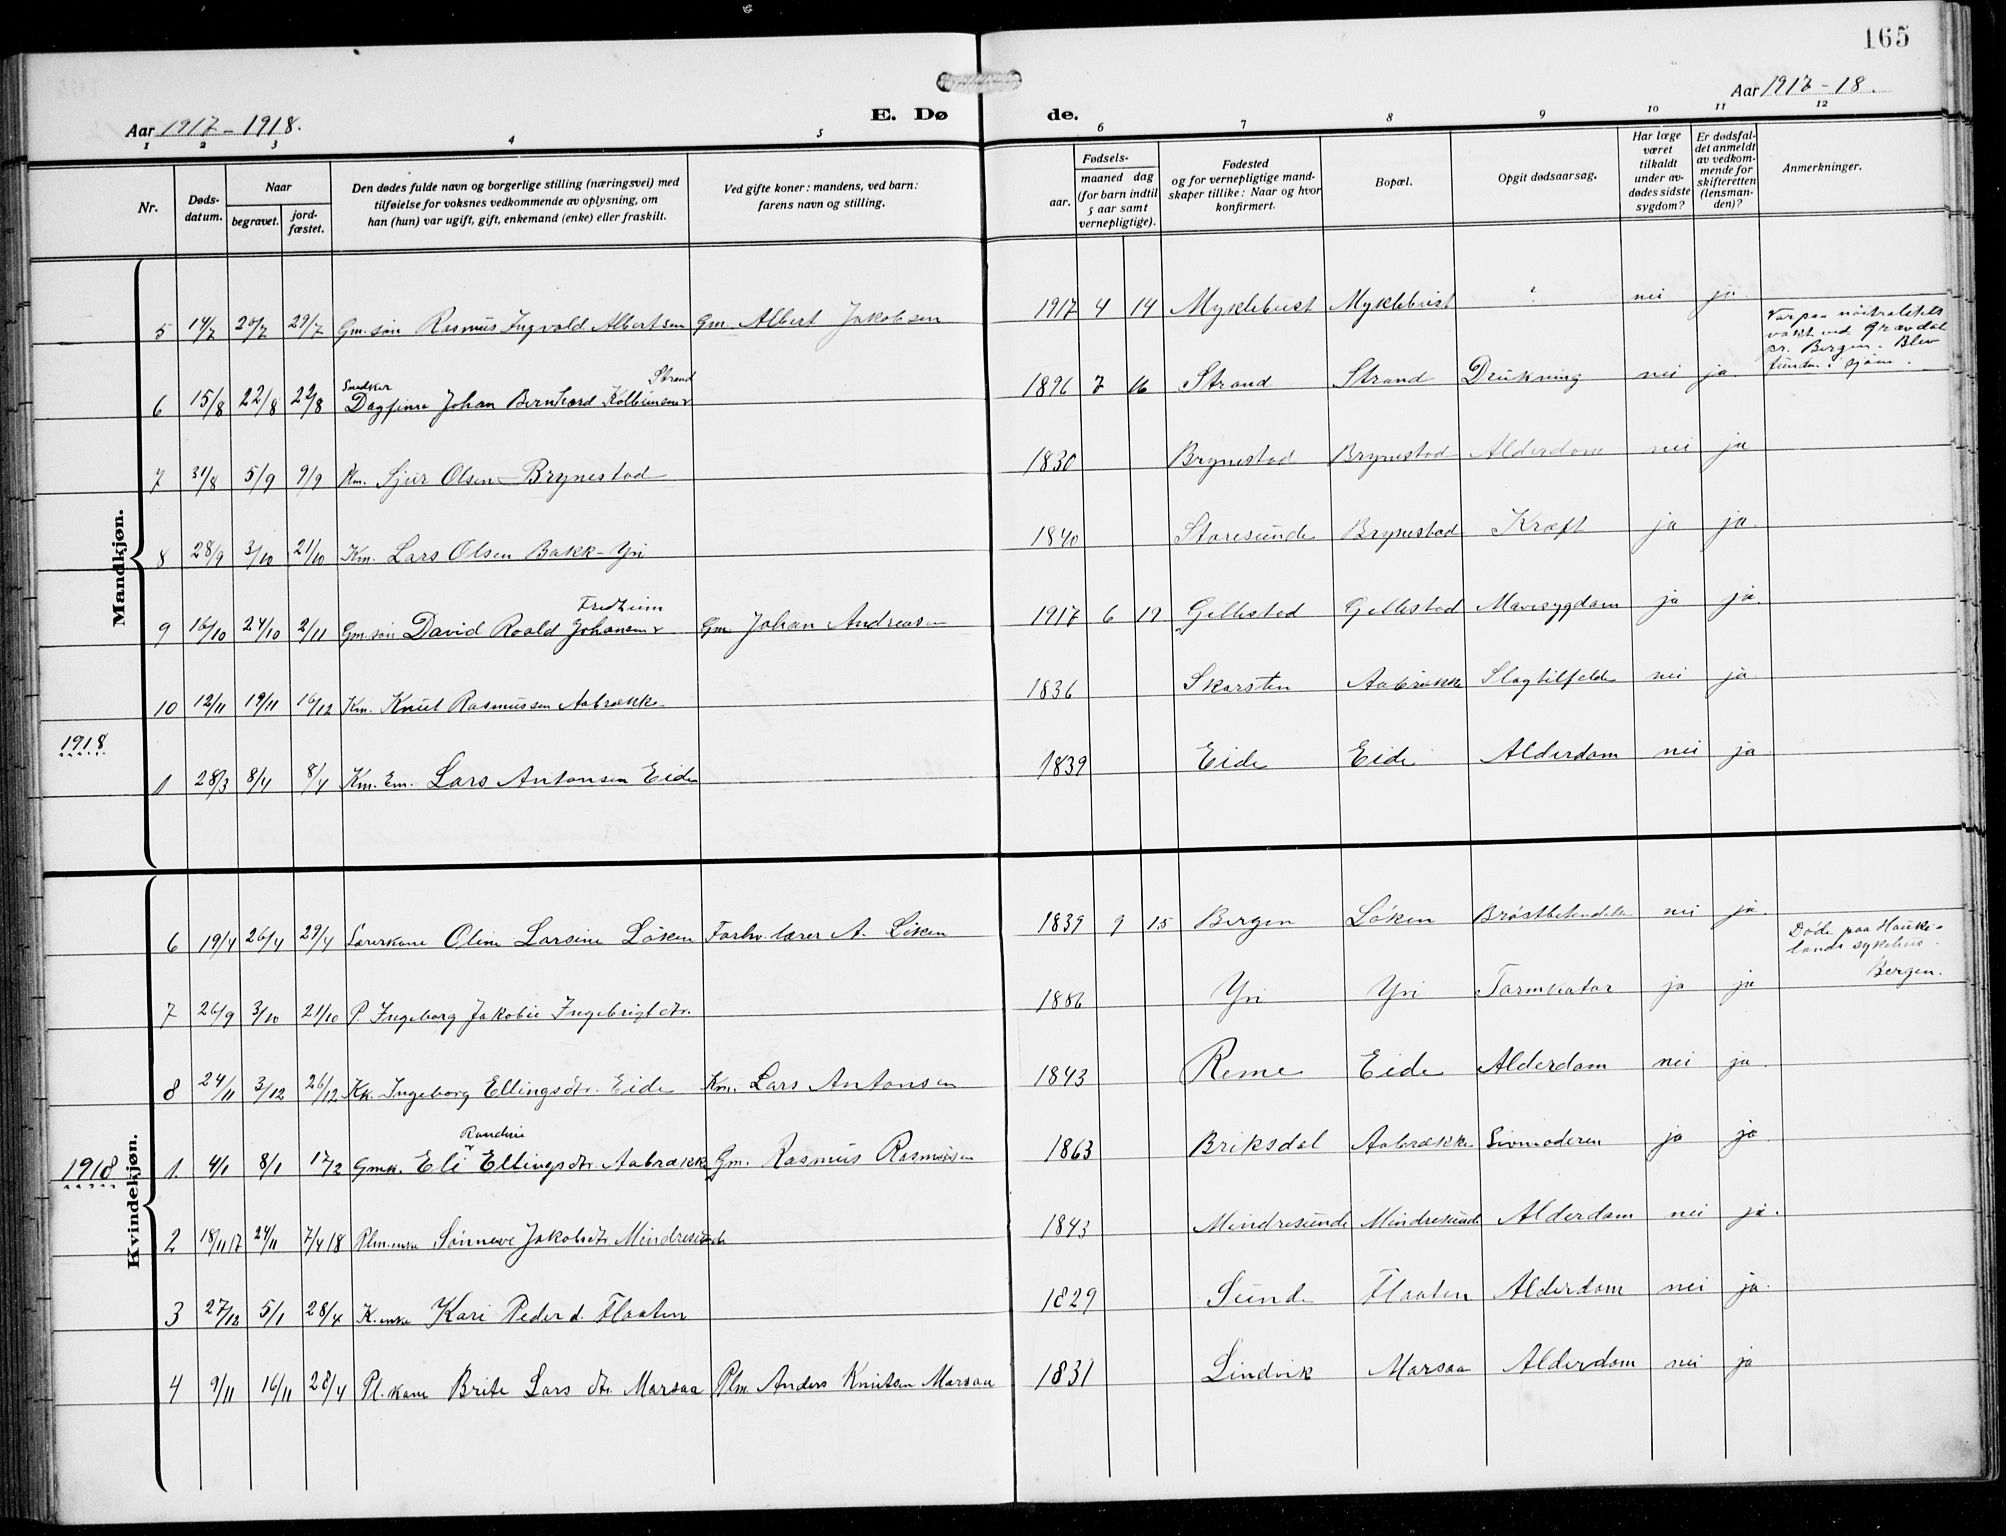 165
Aar 1917-1918.
E. Døde.
Aar 1917-18.
1 2 3 4 5 6 7 8 9 10 11 12
Nr.
Døds-
datum.
Naar
begravet.
jord-
fæstet.
Den dødes fulde navn og borgerlige stilling (næringsvei) med
tilføielse for voksnes vedkommende av oplysning, om
han (hun) var ugift, gift, enkemand (enke) eller fraskilt.
Ved gifte koner: mandens, ved barn:
farens navn og stilling.
Fødsels-
aar.
maaned dag
(for barn indtil
5 aar samt
vernepligtige).
Fødested
og for vernepligtige mand-
skaper tillike: Naar og hvor
konfirmert.
Bopæl.
Opgit dødsaarsag.
Har læge
været
tilkaldt
under av-
dødes sidste
sygdom?
Er dødsfal-
det anmeldt
av vedkom-
mende for
skifteretten
(lensman-
den)?
Anmerkninger.
Mandkjøn.
5 14/7 20/7 29/7 Gm. søn Rasmus Ingvald Albertsen Gm. Albert Jakobsen 1917 4 14 Myklebust Myklebust ? nei ja
Var paa nøitralitets
vakt ved Gravdal
pr. Bergen. Blev
funden i sjøen.
Snedker Strand
6 15/8 22/8 22/8 Dagfinn Johan Bernhard Kolbeinsen 1896 7 16 Strand Strand Drukning nei ja
7 31/8 5/9 9/9 Km. Sjur Olsen Brynestad 1830 Brynestad Brynestad Alderdom nei ja
8 28/9 3/10 21/10 Km. Lars Olsen Bakk-Yri 1840 Staresunde Brynestad Kræft ja ja
Fredheim
9 16/10 24/10 2/11 Gm. søn David Roald Johansen Gm Johan Andreasen 1917 6 19 Gjellestad Gjellestad Mavesygdom ja ja
10 12/11 19/11 16/12 Km. Knut Rasmussen Aabrække 1836 Skarsten Aabrække Slagtilfelde nei ja
1918
1 28/3 8/4 8/4 Km. Em. Lars Antonsen Eide 1839 Eide Eide Alderdom nei ja
Kvindekjøn.
6 19/4 26/4 29/4 Lærerkone Oline Larsine Løken Forhv. lærer A. Løken 1839 9 15 Bergen Løken Brøstbetendelse nei ja
Døde paa Hauke-
lands sykehus.
Bergen.
7 26/9 3/10 21/10 P. Ingeborg Jakobie Ingebrigtdtr. 1886 Yri Yri Tarmkatar ja ja
8 24/11 3/12 26/12 Kk. Ingeborg Ellingsdtr. Eide Km. Lars Antonsen 1843 Reme Eide Alderdom nei ja
Randine
1918
1. 4/1 8/1 17/2 Gmk. Eli Ellingsdtr. Aabrække Gm. Rasmus Rasmussen 1863 Briksdal Aabrække Livmoderen ja ja
2 18/11 17 24/11 7/4 18 Plm. enke Sønneve Jakobsdtr Mindresunde 1843 Mindresunde Mindresunde Alderdom nei ja.
3 27/12 5/1 28/4 K. enke Kari Peder d. Flaaten 1829 Sunde Flaaten Alderdom nei ja.
4 9/11 16/11 28/4 Pl. kone Brite Lars dtr. Marsaa Plm. Anders Knutsen Marsaa 1831 Lindvik Marsaa Alderdom nei ja